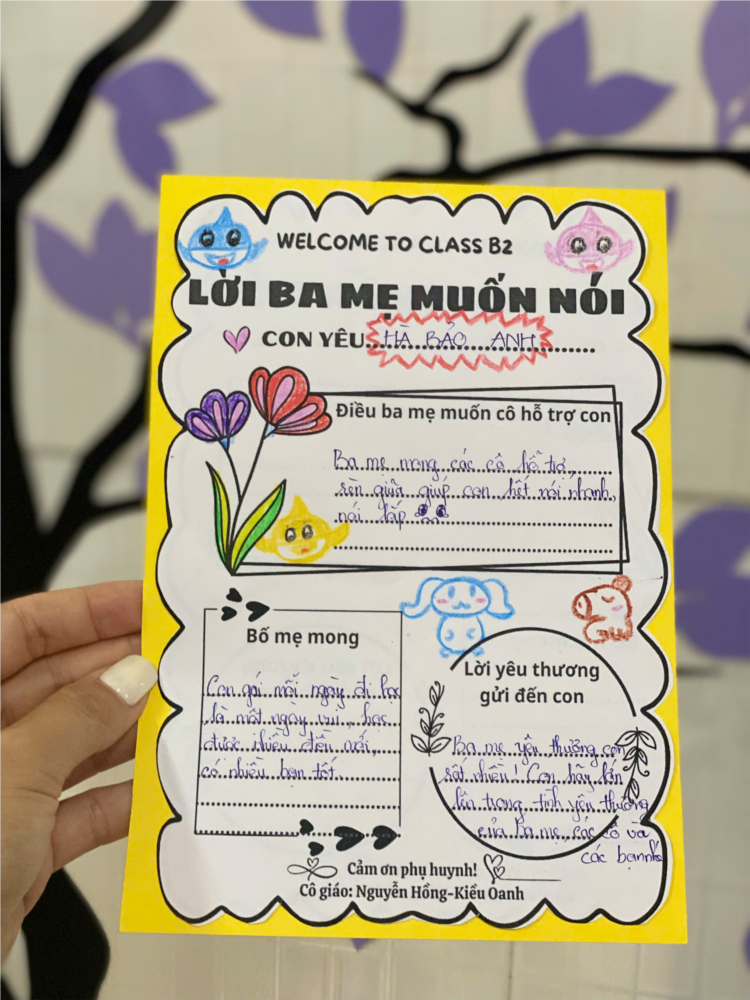 WELCOME TO CLASS B2
LỜI BA MẸ MUỐN NÓI
CON YÊU HÀ BẢO ANH
Điều ba mẹ muốn cô hỗ trợ con
Ba mẹ mong các cô hỗ trợ,
rèn giũa giúp con hết nói nhanh,
nói lắp
Bố mẹ mong
Con gái mỗi ngày đi học
là một ngày vui, học
được nhiều điều mới,
có nhiều bạn tốt
Lời yêu thương
gửi đến con
Ba mẹ yêu thương con
rất nhiều! Con hãy lớn
lên trong tình yêu thương
của Ba mẹ, các cô và
các bạn nhé
Cảm ơn phụ huynh!
Cô giáo: Nguyễn Hồng-Kiều Oanh